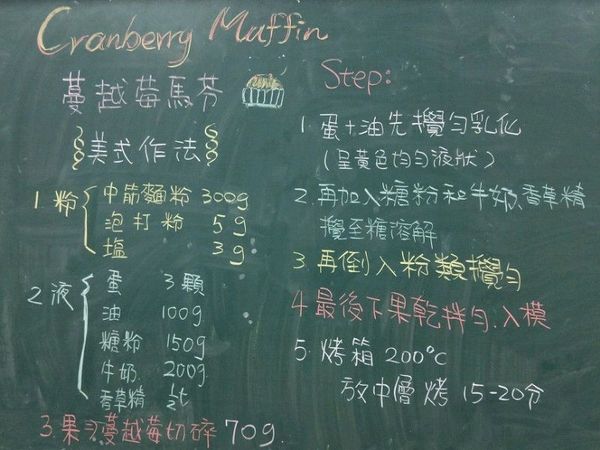 Cranberry Muffin
蔓越莓馬芬
美式作法
1. 粉
中筋麵粉 300g
泡打粉 5g
塩 3g
2. 液
蛋 3顆
油 100g
糖粉 150g
牛奶 200g
香草精
3. 果 蔓越莓切碎 70g.
Step:
1. 蛋+油先攪勻乳化
(呈黃色均勻液狀)
2. 再加入糖粉和牛奶、香草精
攪至糖溶解
3. 再倒入粉類攪勻
4. 最後下果乾拌勻.入模
5. 烤箱 200°C
放中層烤 15-20分